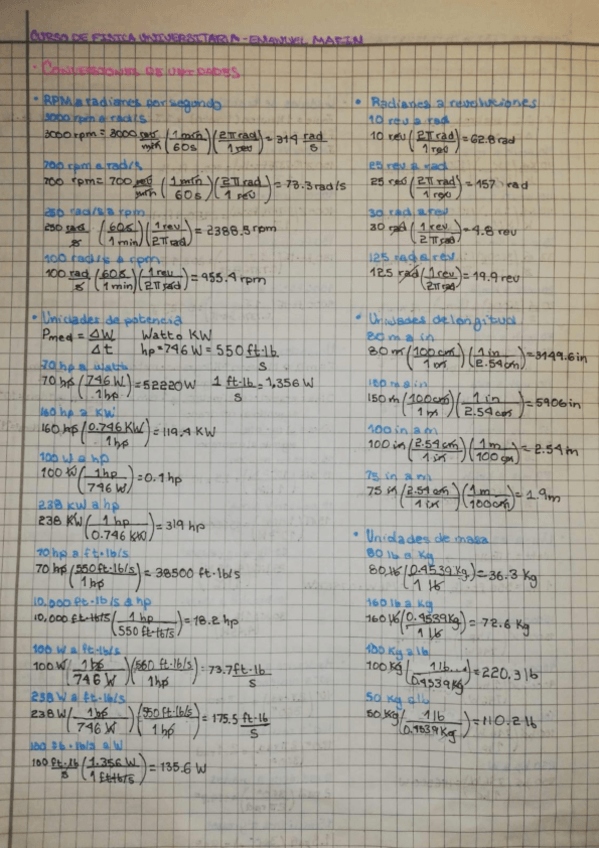 CURSO DE FISICA UNIVERSITARIA - EMANUEL MARIN
• CONVERSIONES DE UNIDADES
• RPM a radianes por segundo
3000 rpm a rad/s
3000 rpm = 3000 rev/min (1 min/60s)(2π rad/1 rev) = 314 rad/s
700 rpm a rad/s
700 rpm = 700 rev/min (1 min/60s)(2π rad/1 rev) = 73.3 rad/s
250 rad/s a rpm
250 rad/s (60s/1 min)(1 rev/2π rad) = 2388.5 rpm
100 rad/s a rpm
100 rad/s (60s/1 min)(1 rev/2π rad) = 955.4 rpm
• Unidades de potencia
Pmed = ΔW/Δt Watt o KW
hp • 746 W = 550 ft·lb./s
70 hp a watts
70 hp (746 W/1 hp) = 52220 W 1 ft·lb/s = 1,356 W
160 hp a KW
160 hp (0.746 KW/1 hp) = 119.4 KW
100 W a hp
100 W (1 hp/746 W) = 0.1 hp
238 KW a hp
238 KW (1 hp/0.746 KW) = 319 hp
70 hp a ft·lb/s
70 hp (550 ft·lb/s/1 hp) = 38500 ft·lb/s
10,000 ft·lb/s a hp
10,000 ft·lb/s (1 hp/550 ft·lb/s) = 18.2 hp
100 W a ft·lb/s
100 W (1 hp/746 W)(550 ft·lb/s/1 hp) = 73.7 ft·lb/s
238 W a ft·lb/s
238 W (1 hp/746 W)(550 ft·lb/s/1 hp) = 175.5 ft·lb/s
100 ft·lb/s a W
100 ft·lb/s (1.356 W/1 ft·lb/s) = 135.6 W
• Radianes a revoluciones
10 rev a rad
10 rev (2π rad/1 rev) = 62.8 rad
25 rev a rad
25 rev (2π rad/1 rev) = 157 rad
30 rad a rev
30 rad (1 rev/2π rad) = 4.8 rev
125 rad a rev
125 rad (1 rev/2π rad) = 19.9 rev
• Unidades de longitud
80 m a in
80 m (100 cm/1 m)(1 in/2.54 cm) = 3149.6 in
150 m a in
150 m (100 cm/1 m)(1 in/2.54 cm) = 5906 in
100 in a m
100 in (2.54 cm/1 in)(1 m/100 cm) = 2.54 m
75 in a m
75 in (2.54 cm/1 in)(1 m/100 cm) = 1.9 m
• Unidades de masa
80 lb a Kg
80 lb (0.4539 Kg/1 lb) = 36.3 Kg
160 lb a Kg
160 lb (0.4539 Kg/1 lb) = 72.6 Kg
100 Kg a lb
100 Kg (1 lb/0.4539 Kg) = 220.3 lb
50 Kg a lb
50 Kg (1 lb/0.4539 Kg) = 110.2 lb